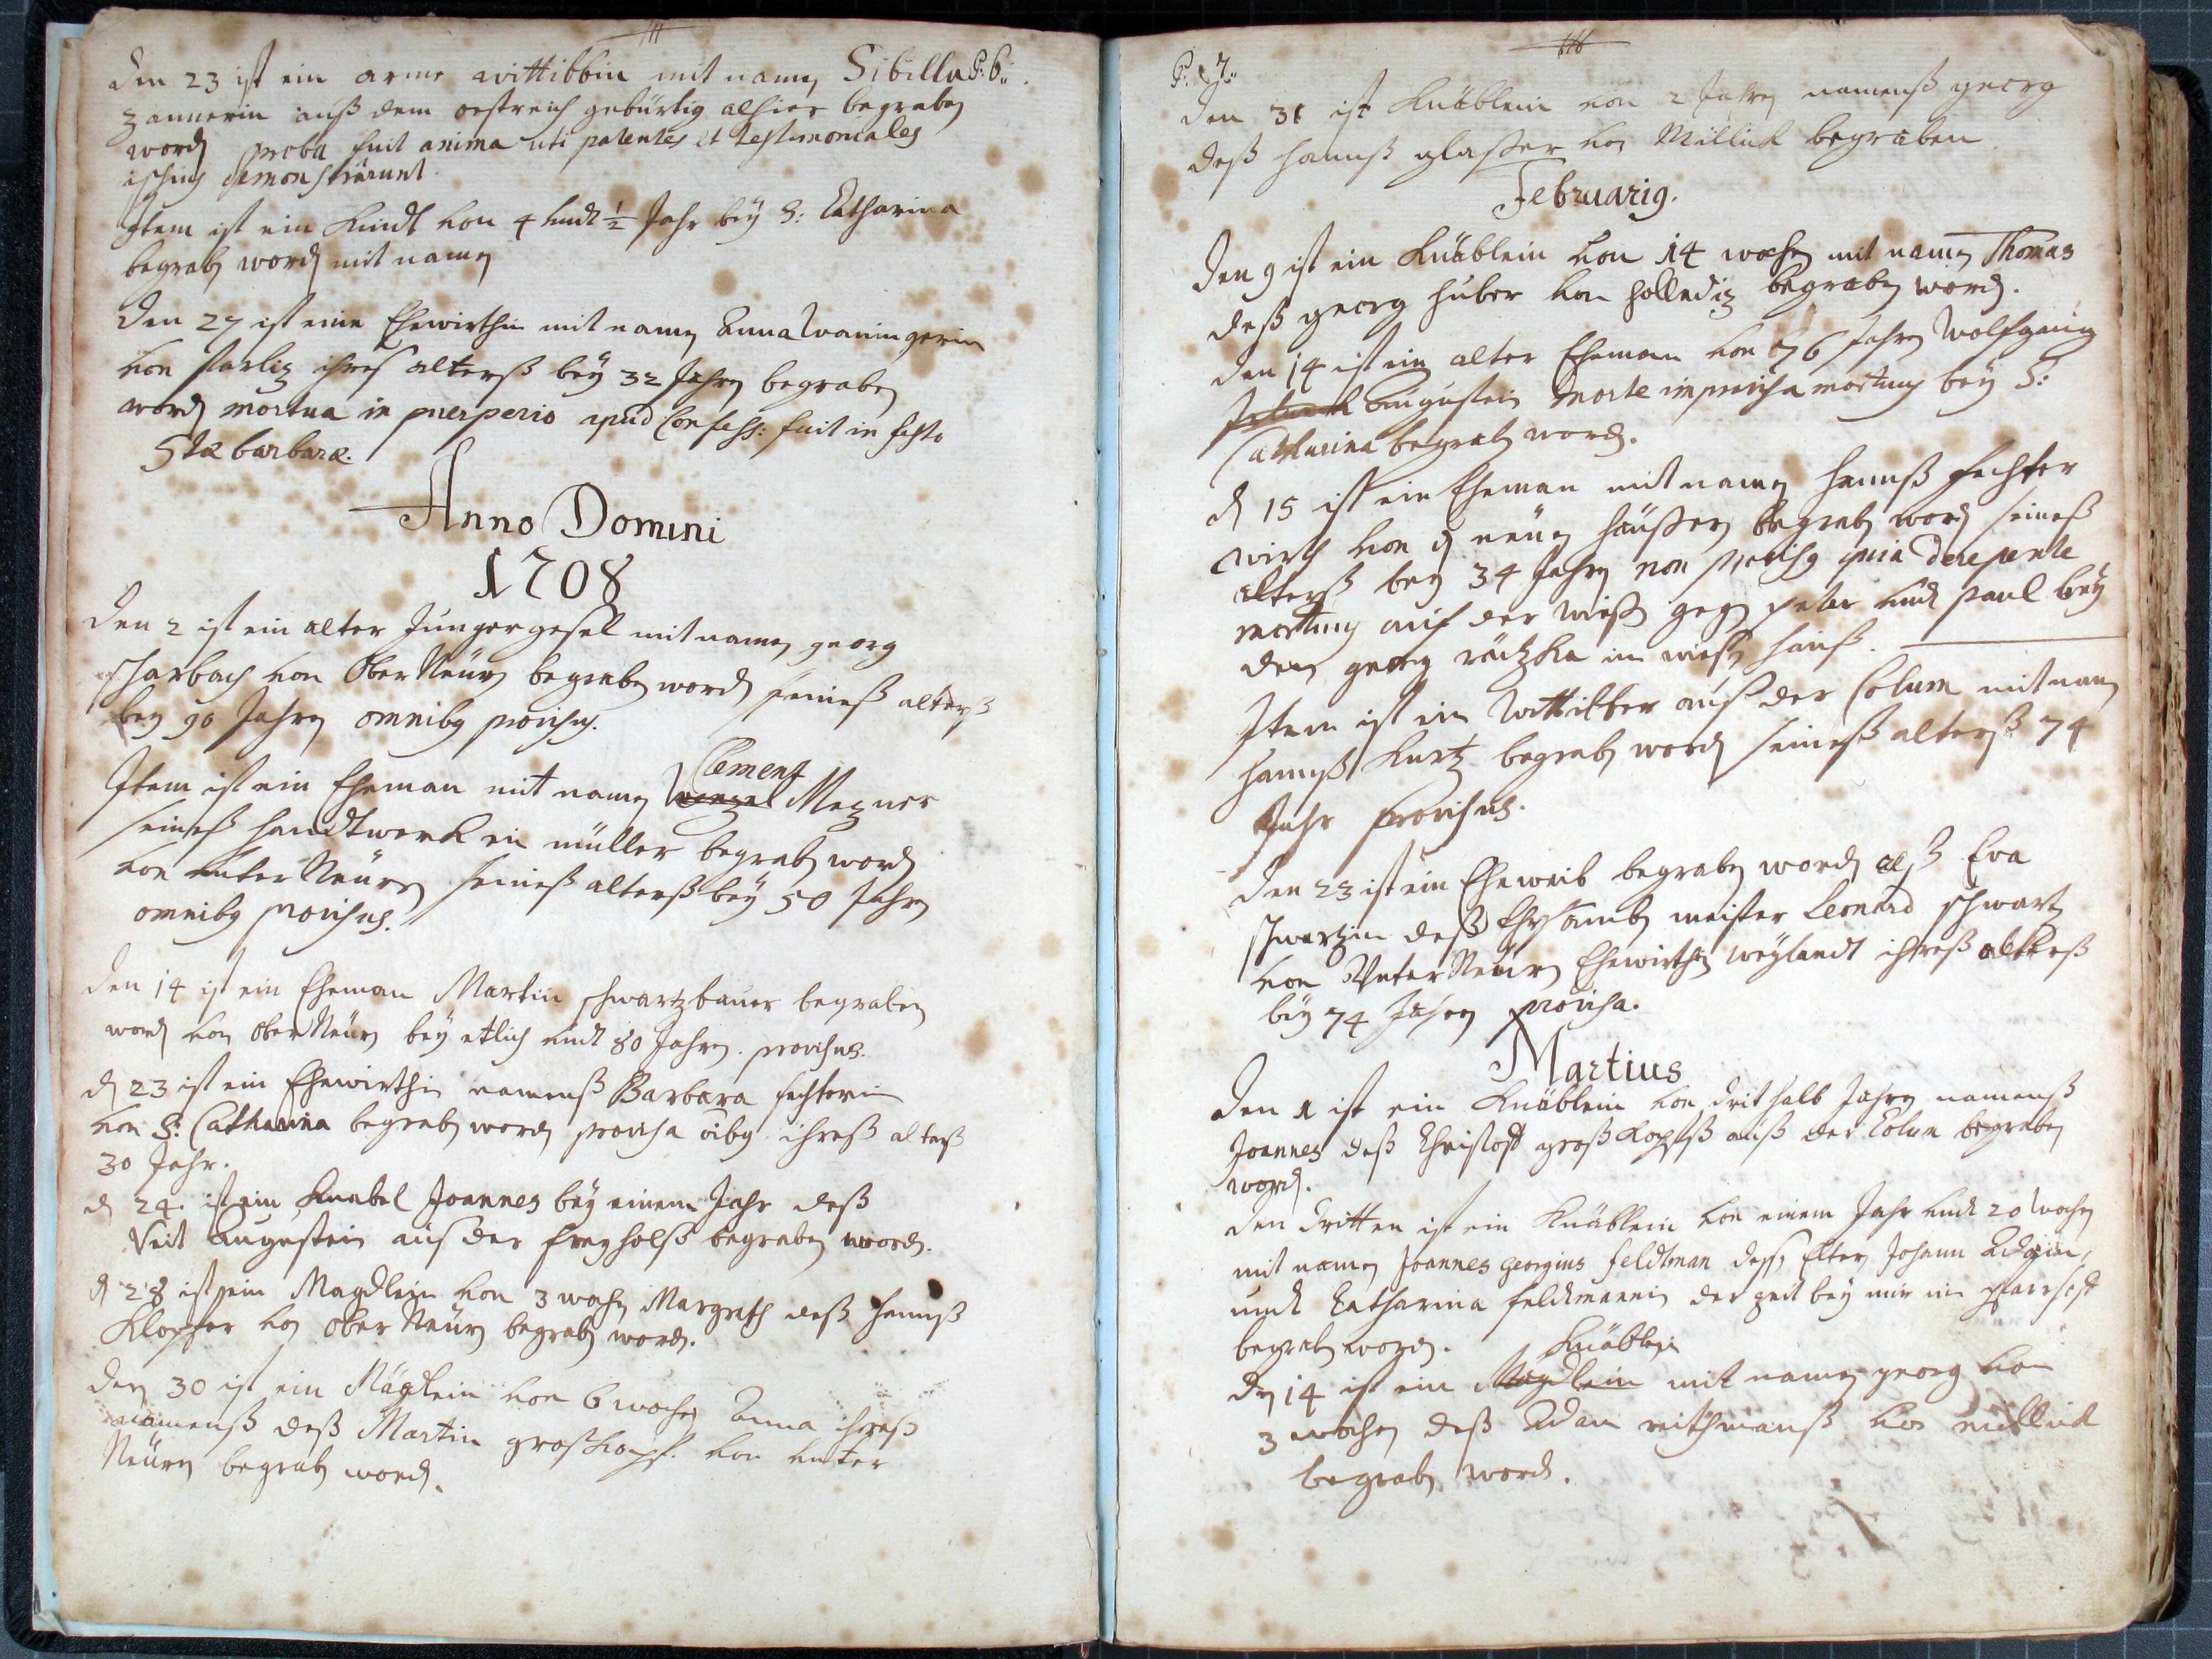 P: 6.
den 23 ist ein arme wittibbin mit namen Sibilla
zannerin auß dem oestreich gebürtig alhier begraben
worden proba fuit anima uti patentes et testimoniales
demonstrarunt.
Item ist ein Kindt von 4 undt ½ Jahr bey S: Catharina
begraben worden mit namen
den 27 ist eine Ehewirthin mit namen Anna Waningerin
von ihres alterß bey 32 Jahren begraben
worden mortua in puerperio apud Confess: fuit in festo
Stæ barbaræ.
Anno Domini
1708
den 2 ist ein alter Junger gesel mit namen georg
scharbach von Ober Neürn begraben worden seineß alterß
bey 90 Jahren omnibq provisus.
Clement
Item ist ein Eheman mit namen Wenzel Mezner
seineß handtwerck ein müller begraben worden
von unter Neürn seineß alterß bey 50 Jahren
omnibq provisus.
den 14 ist ein Eheman Martin schwartzbauer begraben
worden von Ober Neürn bey etlich undt 80 Jahren. provisus.
den 23 ist ein Ehewirthin namenß Barbara fechterin
von S: Catharina begraben worden provisa oibq ihreß alterß
30 Jahr.
den 24. ist ein Knabel Joannes bey einem Jahr deß
Veit Augustein auß der freyholß begraben worden.
den 28 ist ein Magdlein von 3 wochen Margreth deß hannß
Klopfer von Ober Neürn begraben worden.
den 30 ist ein Mägdlein von 6 wochen Anna ihreß
namenß deß Martin großkopf. von unter
Neürn begraben worden.
P: 7.
den 31 ist Knäblein von 2 Jahren namenß georg
deß hannß glasser von Millick begraben
Februarig.
den 9 ist ein Knäblein von 14 wochen mit namen Thomas
deß georg huber von begraben worden.
den 14 ist ein alter Eheman von 76 Jahren Wolfgang
Augustein morte improvisa mortuus bey S:
Catharina begraben worden.
den 15 ist ein Eheman mit namen hannß fechter
wirth von den neüen häußern begraben worden seineß
alterß bey 34 Jahren non provisq quia derepente
mortuus auf der wieß gegen peter und paul bey
dem georg in hauß.
Item ist ein Wittibber auß der Colum mit namen
hannß Kurtz begraben worden seineß alterß 74
Jahr provisus.
den 23 ist ein Eheweib begraben worden alß Eva
schwartzin deß meister Leonard schwartz
von Unter Neürn Ehewirthin weylandt ihreß alterß
bey 74 Jahren provisa.
Martius
den 1 ist ein Knäblein von drithalb Jahren namenß
Joannes deß Christoff großkopfß auß der Colum begraben
worden.
den dritten ist ein Knäblein von einem Jahr undt 20 Wochen
mit namen Joannes georgius feldtman dessen Elter Johann
undt Catharina feldtmannin der zeit bey mir im pfarrhoff
begraben worden.
Knäblein
den 14 ist ein Magdlein mit namen georg von
3 wochen deß Adam reithmanß von millick
begraben worden.